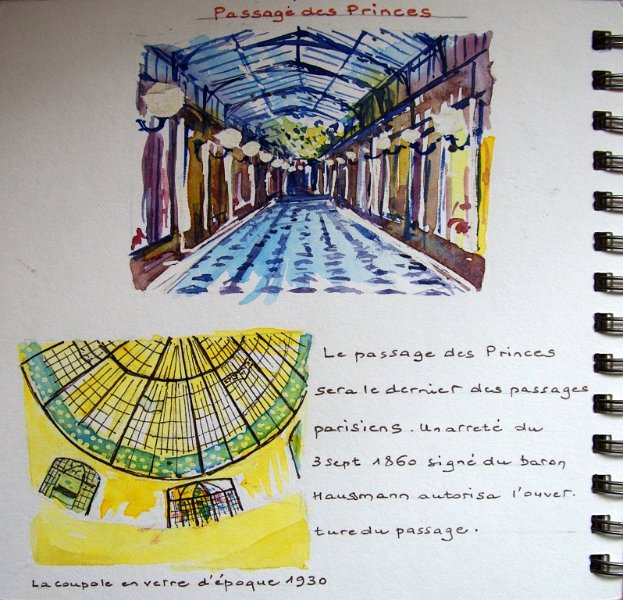 Passage des Princes
Le passage des Princes
sera le dernier des passages
parisiens. Un arreté du
3 sept 1860 signé du baron
Hausmann autorisa l'ouver.
ture du passage.
La coupole en verre d'époque 1930